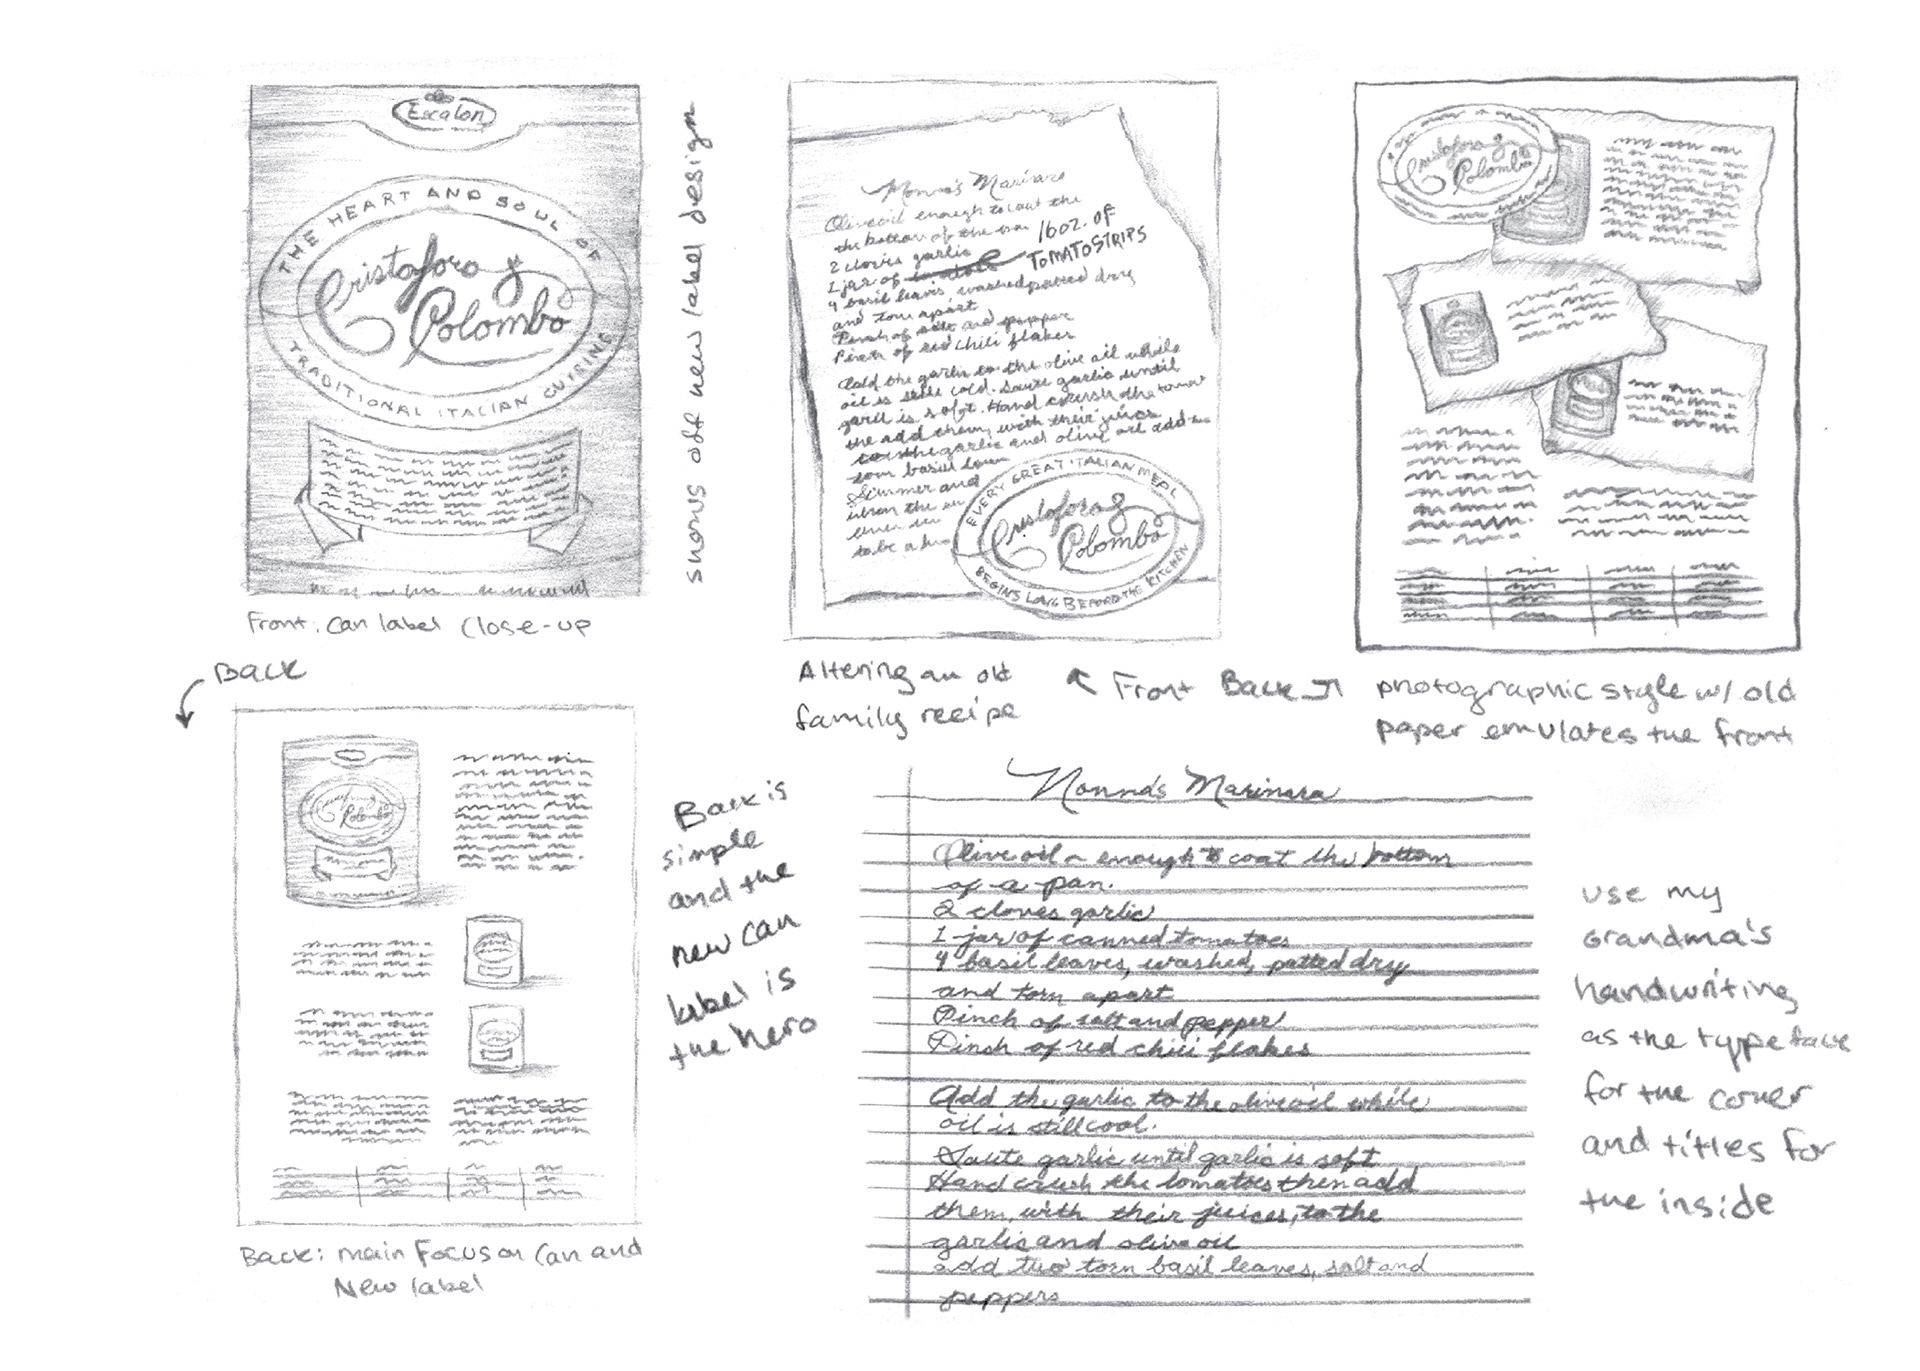 Escalon
THE HEART AND SOUL OF
Cristoforo
Colombo
TRADITIONAL ITALIAN CUISINE
Front: Can label close-up
shows off new label design
Nonna's Marinara
Olive oil enough to coat the
the bottom of the pan
2 cloves garlic
1 jar of
16oz. of
TOMATO STRIPS
4 basil leaves washed patted dry
and torn apart
Pinch of salt and pepper
Pinch of red chili flakes
Add the garlic to the olive oil while
oil is still cold. Saute garlic until
garlic is soft. Hand crush the tomat
the add them, with their juices
to the garlic and olive oil add
torn basil
Simmer and
when the
to be a
EVERY GREAT ITALIAN MEAL
Cristoforo
Colombo
BEGINS LONG BEFORE THE KITCHEN
Altering an old
family recipe
Front Back
Cristoforo
Colombo
photographic style w/ old
paper emulates the front
Back
Cristoforo
Colombo
Back: main focus on can and
New label
Back is
simple
and the
new can
label is
the hero
Nonna's Marinara
Olive oil ~ enough to coat the bottom
of a pan.
2 cloves garlic
1 jar of canned tomatoes
4 basil leaves, washed, patted dry
and torn apart
Pinch of salt and pepper
Pinch of red chili flakes
Add the garlic to the olive oil while
oil is still cool.
Saute garlic until garlic is soft
Hand crush the tomatoes then add
them, with their juices, to the
garlic and olive oil
add two torn basil leaves, salt and
peppers
use my
Grandma's
handwriting
as the typeface
for the cover
and titles for
the inside